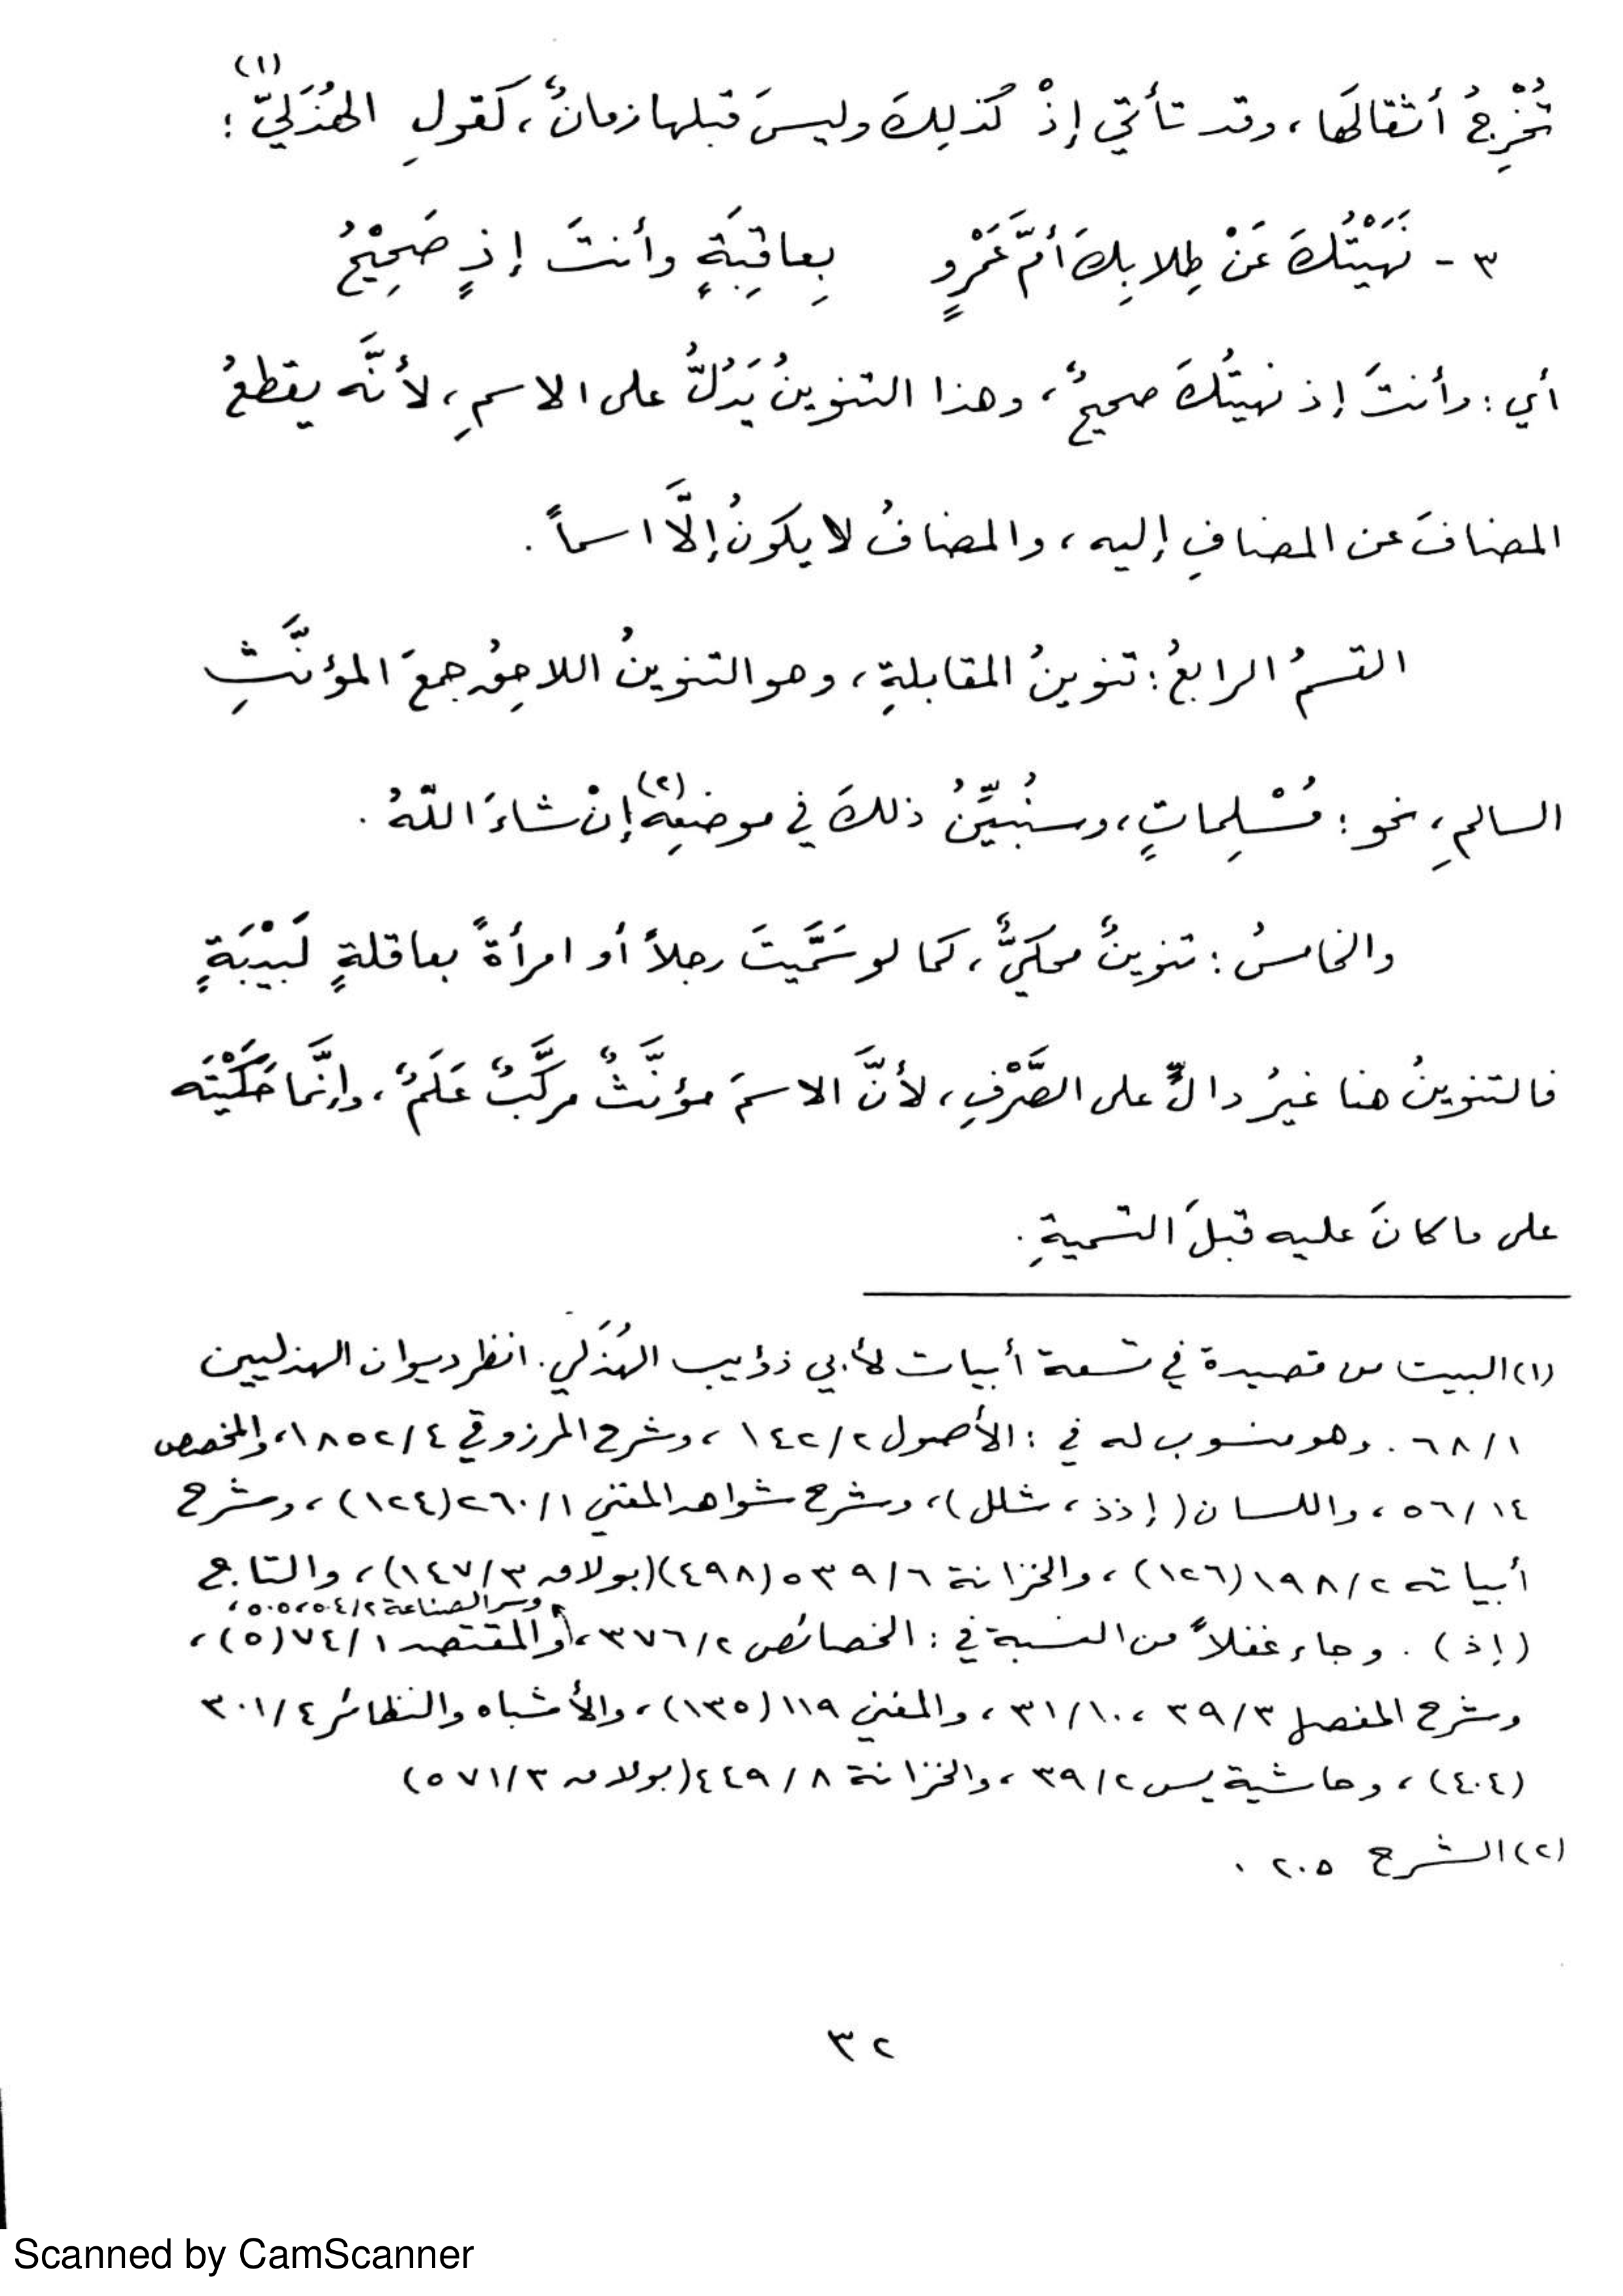 تُخْرِجُ أثقالَها، وقد تأتي إذْ كذلِكَ وليسَ قبلها زمانٌ، كَقولِ الهُذَليّ(١):
٣ - نَهَيْتُكَ عَنْ طِلابِكَ أمَّ عَمْرٍو بِعاقِبَةٍ وأنتَ إذٍ صَحِيْحُ
أي: وأنتَ إذ نهيتُكَ صحيحٌ، وهذا التنوينُ يَدُلُّ على الاسمِ، لأنَّه يقطعُ
المضافَ عن المضافِ إليه، والمضافُ لا يكونُ إلَّا اسماً.
القسمُ الرابعُ: تنوينُ المقابلةِ، وهو التنوينُ اللاحِقُ جمعَ المؤنَّثِ
السالمِ، نحو: مُسْلِماتٍ، وسنُبيِّنُ ذلكَ في موضعِهِ(٢) إنْ شاءَ اللّهُ.
والخامسُ: تنوينٌ محكيٌّ، كما لو سَمَّيتَ رجلاً أو امرأةً بعاقلةٍ لَبيْبَةٍ
فالتنوينُ هنا غيرُ دالٍّ على الصَّرْفِ، لأنَّ الاسمَ مؤنَّثٌ مركَّبٌ عَلَمٌ، وإنَّما حَكَيْتَه
على ما كانَ عليه قبلَ التسميةِ.
(١) البيت من قصيدة في تسعة أبيات لأبي ذؤيب الهُذَلي. انظر ديوان الهذليين
٦٨/١. وهو منسوب له في: الأصول ١٤٢/٢، وشرح المرزوقي ١٨٥٢/٤، والمخصص
٥٦/١٤، واللسان (إذذ، شلل)، وشرح شواهد المغني ٢٦٠/١ (١٢٤)، وشرح
أبياته ١٩٨/٢ (١٢٦)، والخزانة ٥٣٩/٦ (٤٩٨) (بولاق ١٤٧/٣)، والتاج
وسر الصناعة ٥٠٤/٢، ٥٠٥،
(إذ). وجاء غفلاً من النسبة في: الخصائص ٣٧٦/٢، والمقتصد ٧٤/١ (٥)،
وشرح المفصل ٣٩/٣، ٣١/١٠، والمغني ١١٩ (١٣٥)، والأشباه والنظائر ٣٠١/٤
(٤٠٤)، وحاشية يس ٣٩/٢، والخزانة ٤٤٩/٨ (بولاق ٥٧١/٣)
(٢) الشرح ٢٠٥.
٣٢
Scanned by CamScanner